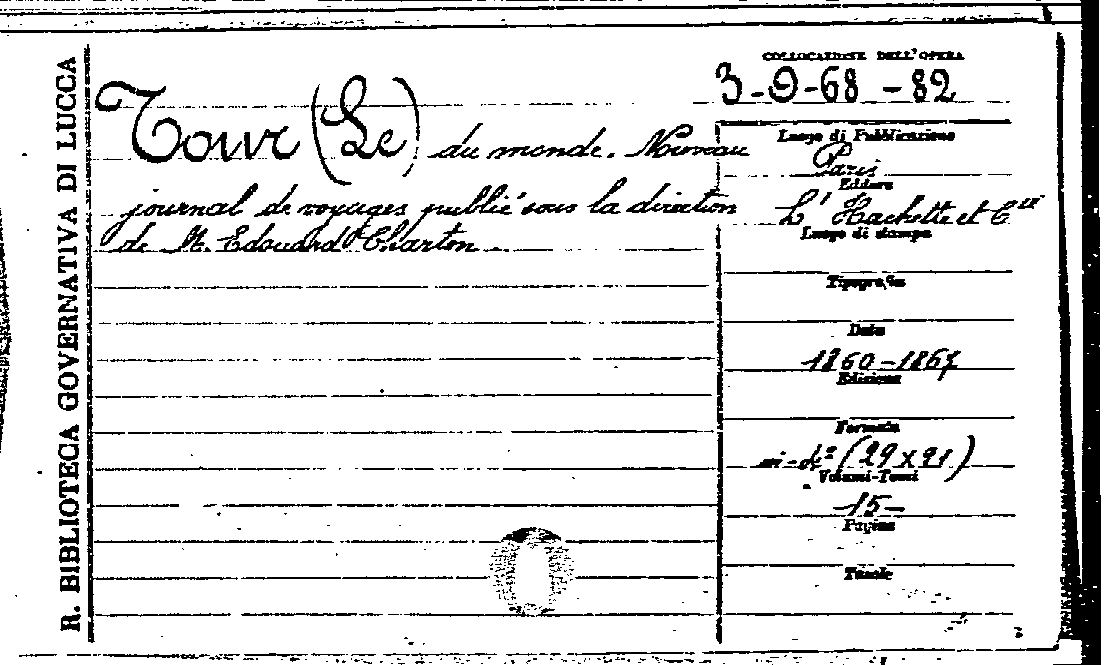 R. BIBLIOTECA GOVERNATIVA DI LUCCA
Tour (Le) du monde. Nouveau
journal de voyages publié sous la direction
de M. Edouard Charton
COLLOCAZIONE DELL'OPERA
3-9-68-82
Luogo di Pubblicazione
Paris
Editore
L' Hachette et Cie
Luogo di stampa
Tipografia
Data
1860-1867
Edizione
Formato
in-4º (29x21)
Volumi-Tomi
15-
Pagine
Tavole